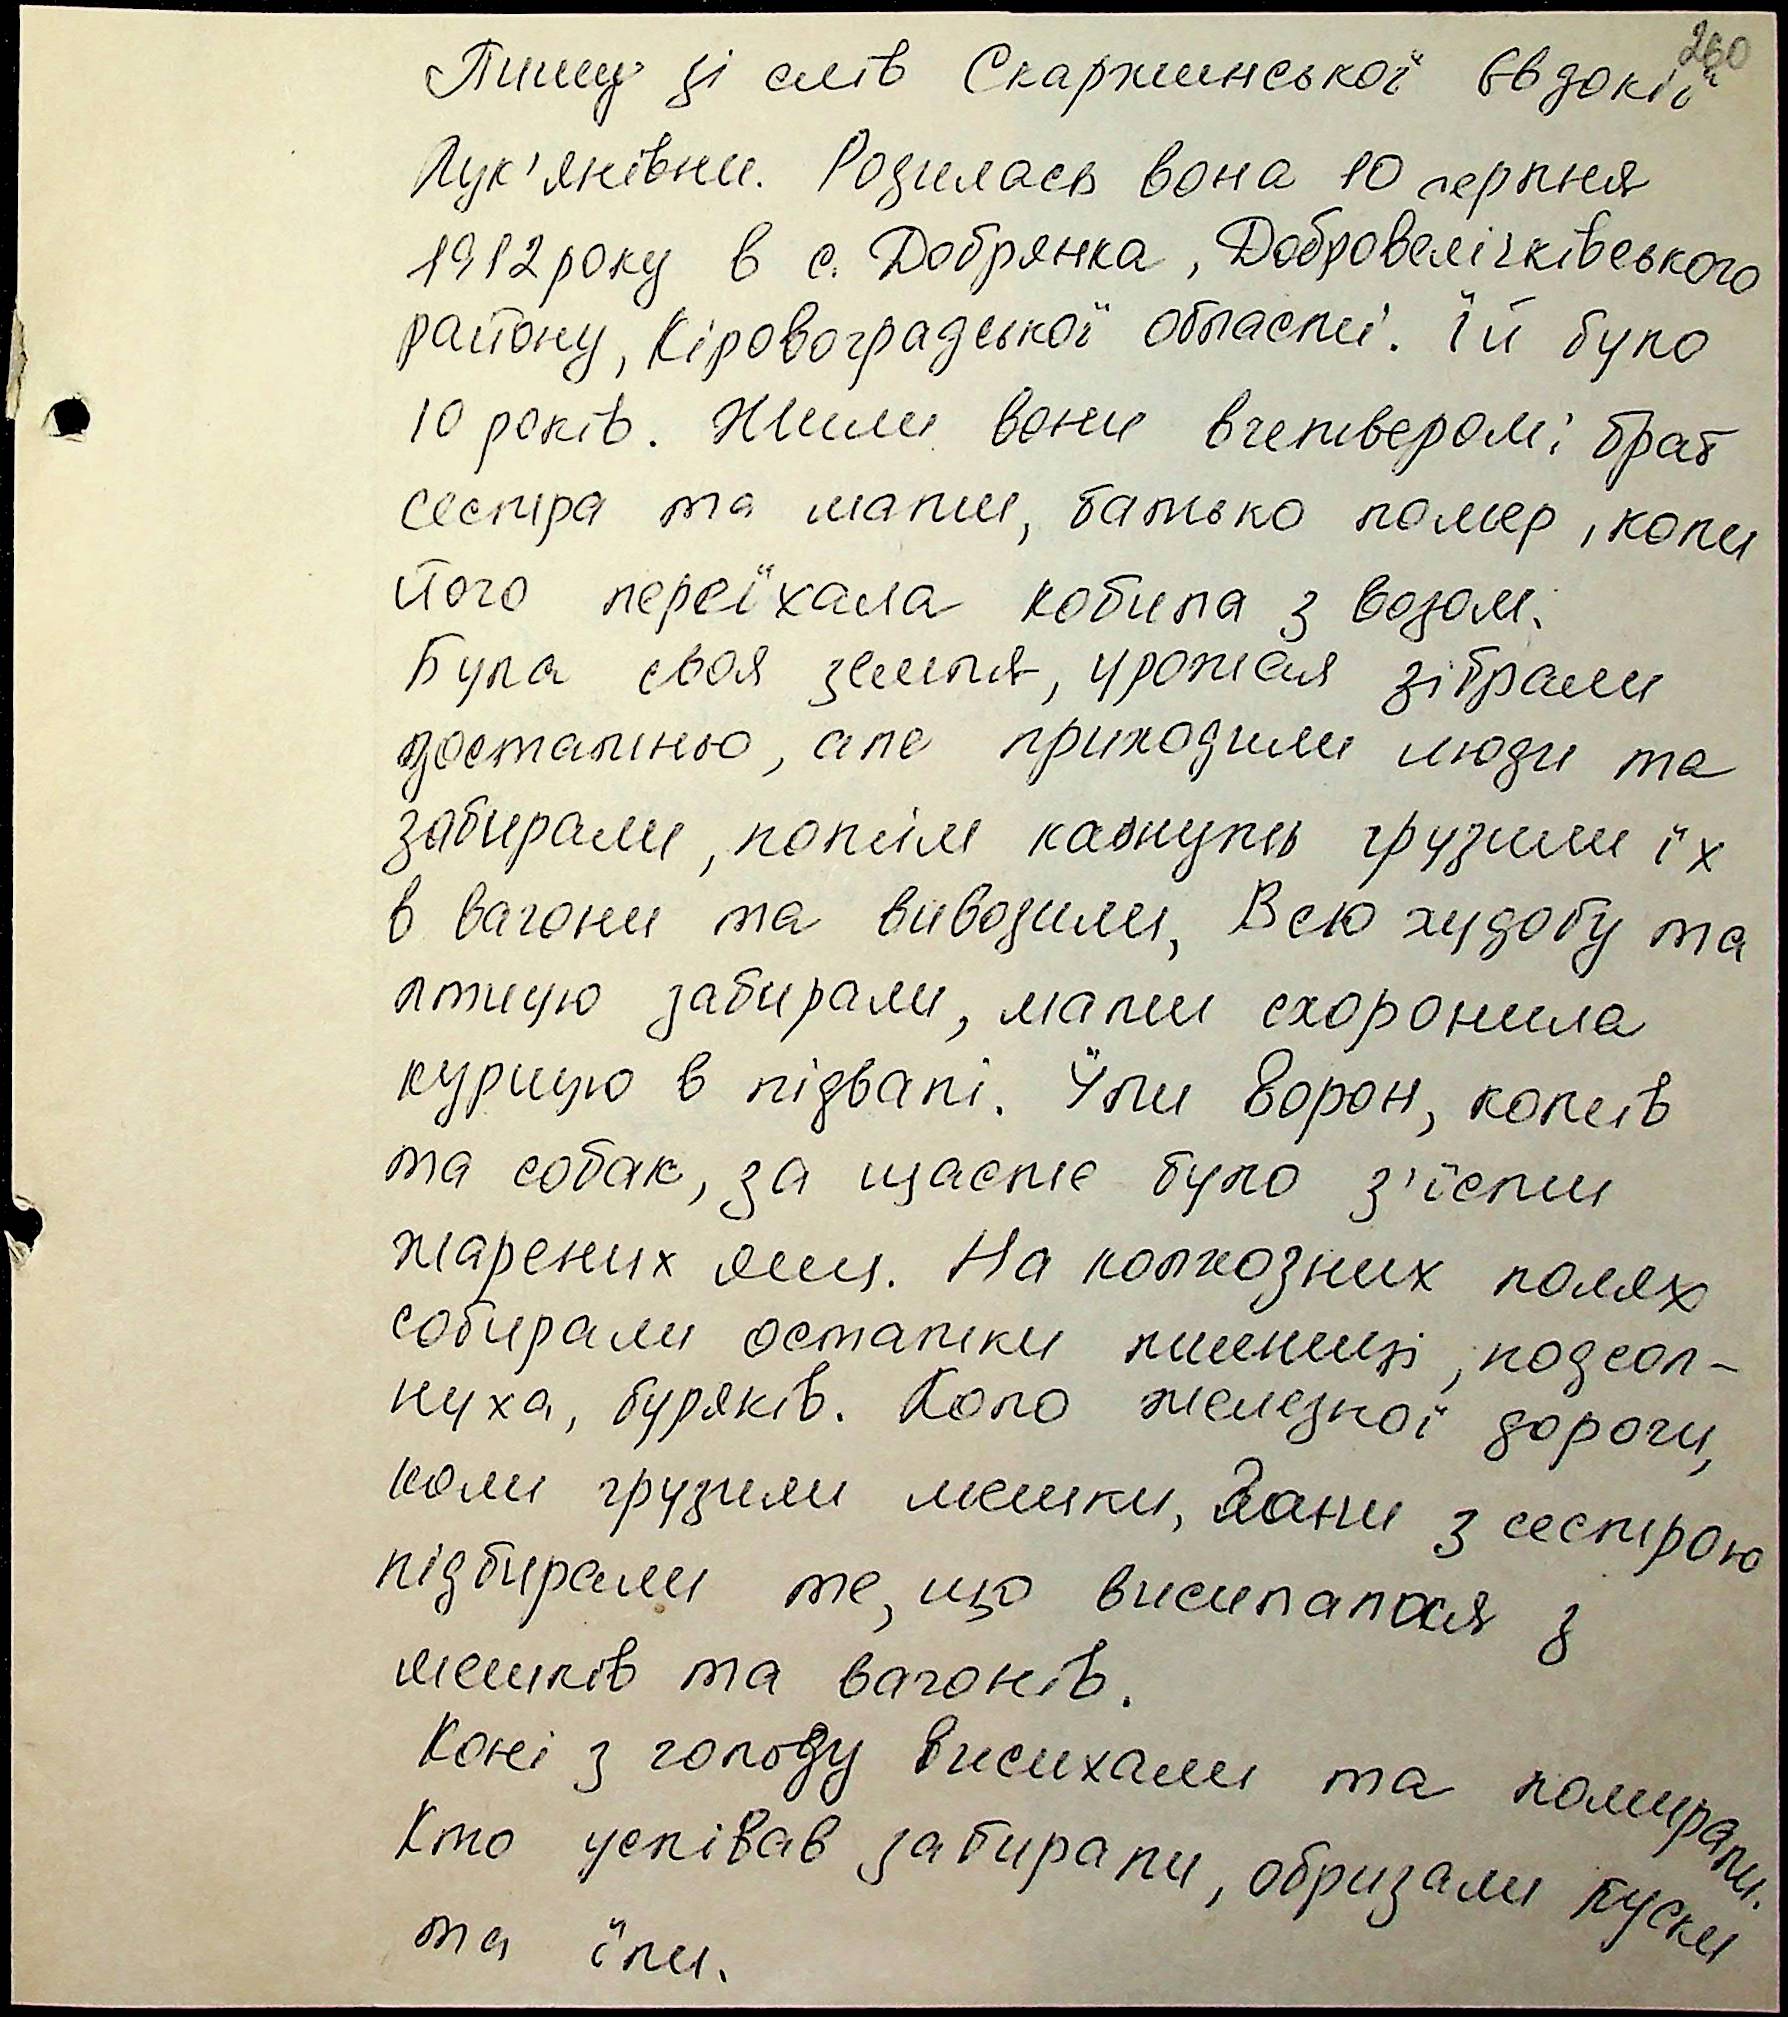 260
Пишу зі слів Скаржинської Євдокії
Лук'янівни. Родилась вона 10 серпня
1912 року в с. Добрянка, Добровелічківського
району, Кіровоградської області. Їй було
10 років. Жили вони вчетвером: брат
сестра та мати, батько помер, коли
його переїхала кобила з возом.
Була своя земля, урожая зібрали
достатньо, але приходили люди та
забирали, потім кажуть грузили їх
в вагони та вивозили, Всю худобу та
птицю забирали, мати схоронила
курицю в підвалі. Їли ворон, котів
та собак, за щастє було з'їсти
жарених яиц. На колхозних полях
собирали остатки пшениці, подсол-
нуха, буряків. Коло железної дороги,
коли грузили мешки, вани з сестрою
підбирали те, що висипалося з
мешків та вагонів.
Коні з голоду висихали та помирали.
Кто успівав забирали, обризали куски
та їли.